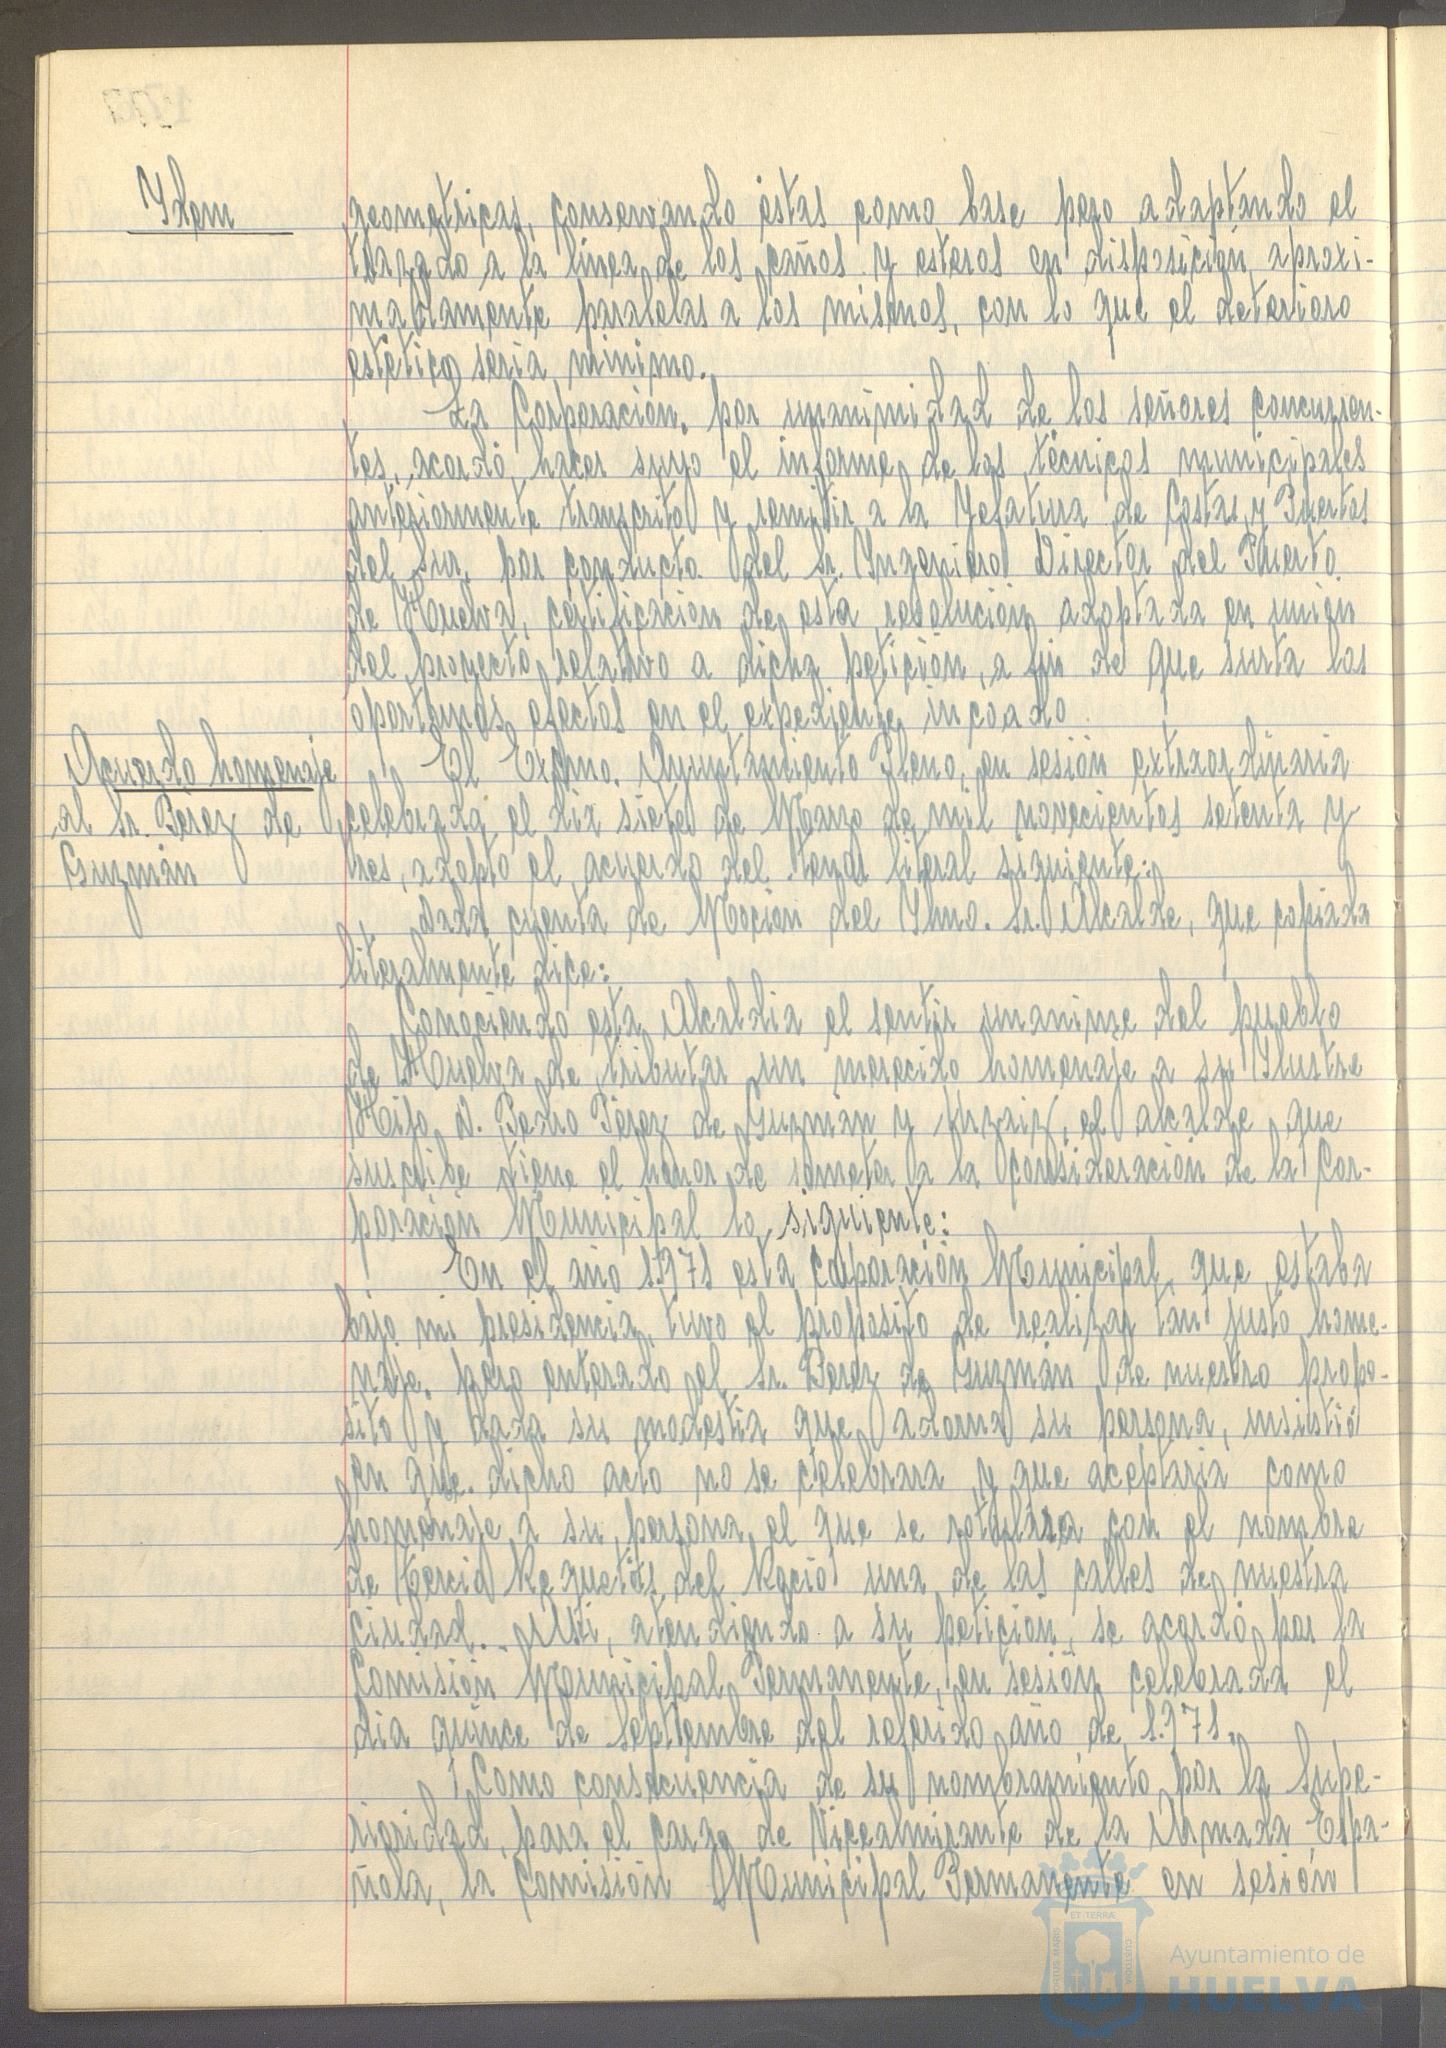 Ydem
geometricas, conservando éstas como base pero adaptando el
trazado a la línea de los caños y esteros en disposición aproxi-
madamente paralelas a los mismos, con lo que el deterioro
estético seria minimo.
La Corporación, por unanimidad de los señores concurren-
tes, acordó, hacer suyo el informe de los técnicos municipales
anteriormente transcrito y remitir a la Yefatura de Costas y Puertos
del Sur, por conducto del Sr. Yngeniero Director del Puerto
de Huelva, certificación de esta resolución adoptada en unión
del proyecto relativo a dicha petición, a fin de que surta los
oportunos efectos en el expediente incoado.
Acuerdo homenaje
al Sr. Pérez de
Guzmán
El Excmo. Ayuntamiento Pleno, en sesión extraordinaria
celebrada el dix siete de Marzo de mil novecientos setenta y
tres, adoptó el acuerdo del tenor literal siguiente:
Dada cuenta de Moción del Yltmo. Sr. Alcalde, que copiada
literalmente dice:
Conociendo esta Alcaldia el sentir unanime del pueblo
de Huelva de tributar un merecido homenaje a su Ylustre
Hijo D. Pedro Pérez de Guzmán y Urzaiz, el alcalde que
suscribe tiene el honor de someter a la consideración de la Cor-
poración Municipal lo siguiente:
En el año 1.971 esta Coporación Municipal, que estaba
bajo mi presidencia, tuvo el proposito de realizar tan justo home-
naje, pero enterado el Sr. Perez de Guzmán de nuestro propo-
sito y dada su modestia que adorna su persona, insistió
en que dicho acto no se celebrara y que aceptaria como
homenaje a su persona el que se rotulara con el nombre
de Tercio Requetés del Rocio una de las calles de nuestra
ciudad. Así, atendiendo a su petición, se acordó por la
Comisión Municipal Permanente, en sesión celebrada el
dia quince de septiembre del referido año de 1.971.
Como consecuencia de su nombramiento por la Supe-
rioridad, para el cargo de Vicealmirante de la Armada Espa-
ñola, la Comisión Municipal Permanente en sesión
ET TERRÆ
PORTUS MARIS
CUSTODIA
Ayuntamiento de
HUELVA